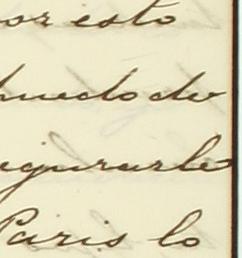 por esto
puedo de
egurarle
Paris lo